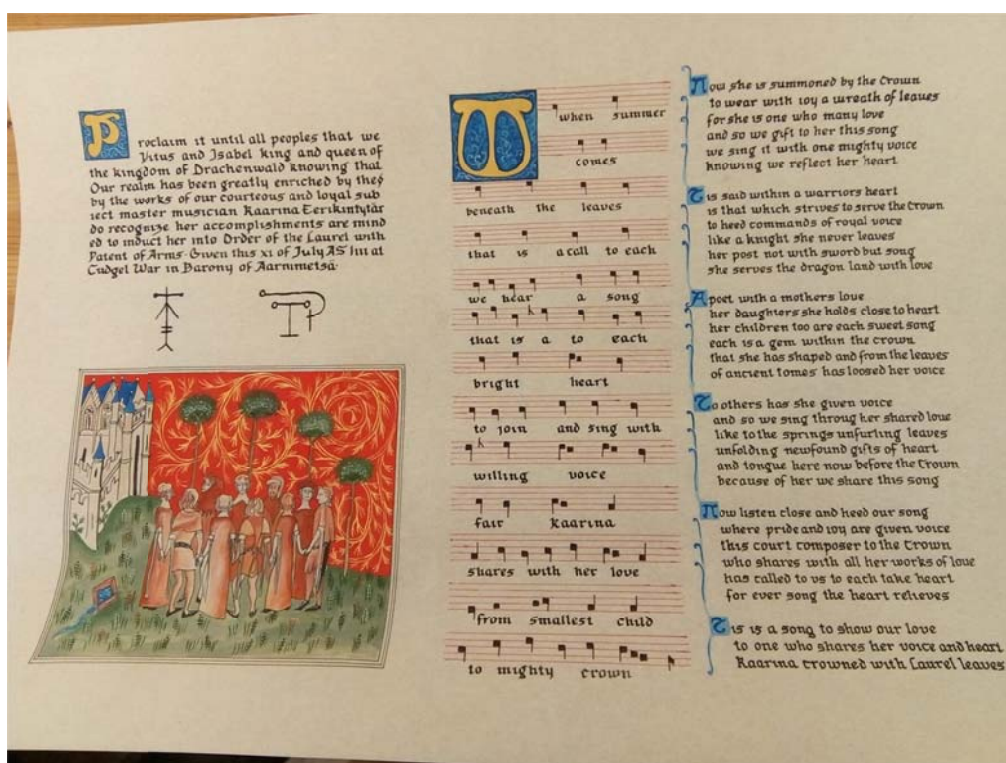 Proclaim it until all peoples that we
Vitus and Isabel king and queen of
the kingdom of Drachenwald knowing that
Our realm has been greatly enriched by they
by the works of our courteous and loyal sub
iect master musician Kaarina Eerikintytär
do recognize her accomplishments are mind
ed to induct her into Order of the Laurel with
Patent of Arms. Given this xi of July AS liii at
Cudgel War in Barony of Aarnimetsä.
When summer
comes
beneath the leaves
that is a call to each
we hear a song
that is a to each
bright heart
to join and sing with
willing voice
fair Kaarina
shares with her love
from smallest child
to mighty crown
Now she is summoned by the Crown
to wear with ioy a wreath of leaves
for she is one who many love
and so we gift to her this song
we sing it with one mighty voice
knowing we reflect her heart
Tis said within a warriors heart
is that which strives to serve the Crown
to heed commands of royal voice
like a knight she never leaves
her post not with sword but song
she serves the dragon land with love
A poet with a mothers love
her daughters she holds close to heart
her children too are each sweet song
each is a gem within the crown
that she has shaped and from the leaves
of ancient tomes has loosed her voice
To others has she given voice
and so we sing throug her shared love
like to the springs unfurling leaves
unfolding newfound gifts of heart
and tongue here now before the Crown
because of her we share this song
Now listen close and heed our song
where pride and ioy are given voice
this court composer to the Crown
who shares with all her works of love
has called to us to each take heart
for ever song the heart relieves
Tis is a song to show our love
to one who shares her voice and heart
Kaarina crowned with Laurel leaves